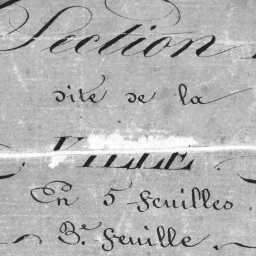 Section
dite de la
VILLE.
En 5 feuilles.
3.e feuille.